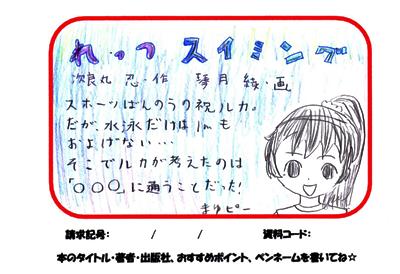 れっつ スイミング
次良丸 忍・作 琴月 綾・画
スポーツばんのうの祝ルカ。
だが、水泳だけは1mも
およげない…
そこでルカが考えたのは
「○○○」に通うことだった!
まゆピー
請求記号: / / 資料コード:
本のタイトル・著者・出版社、おすすめポイント、ペンネームを書いてね☆